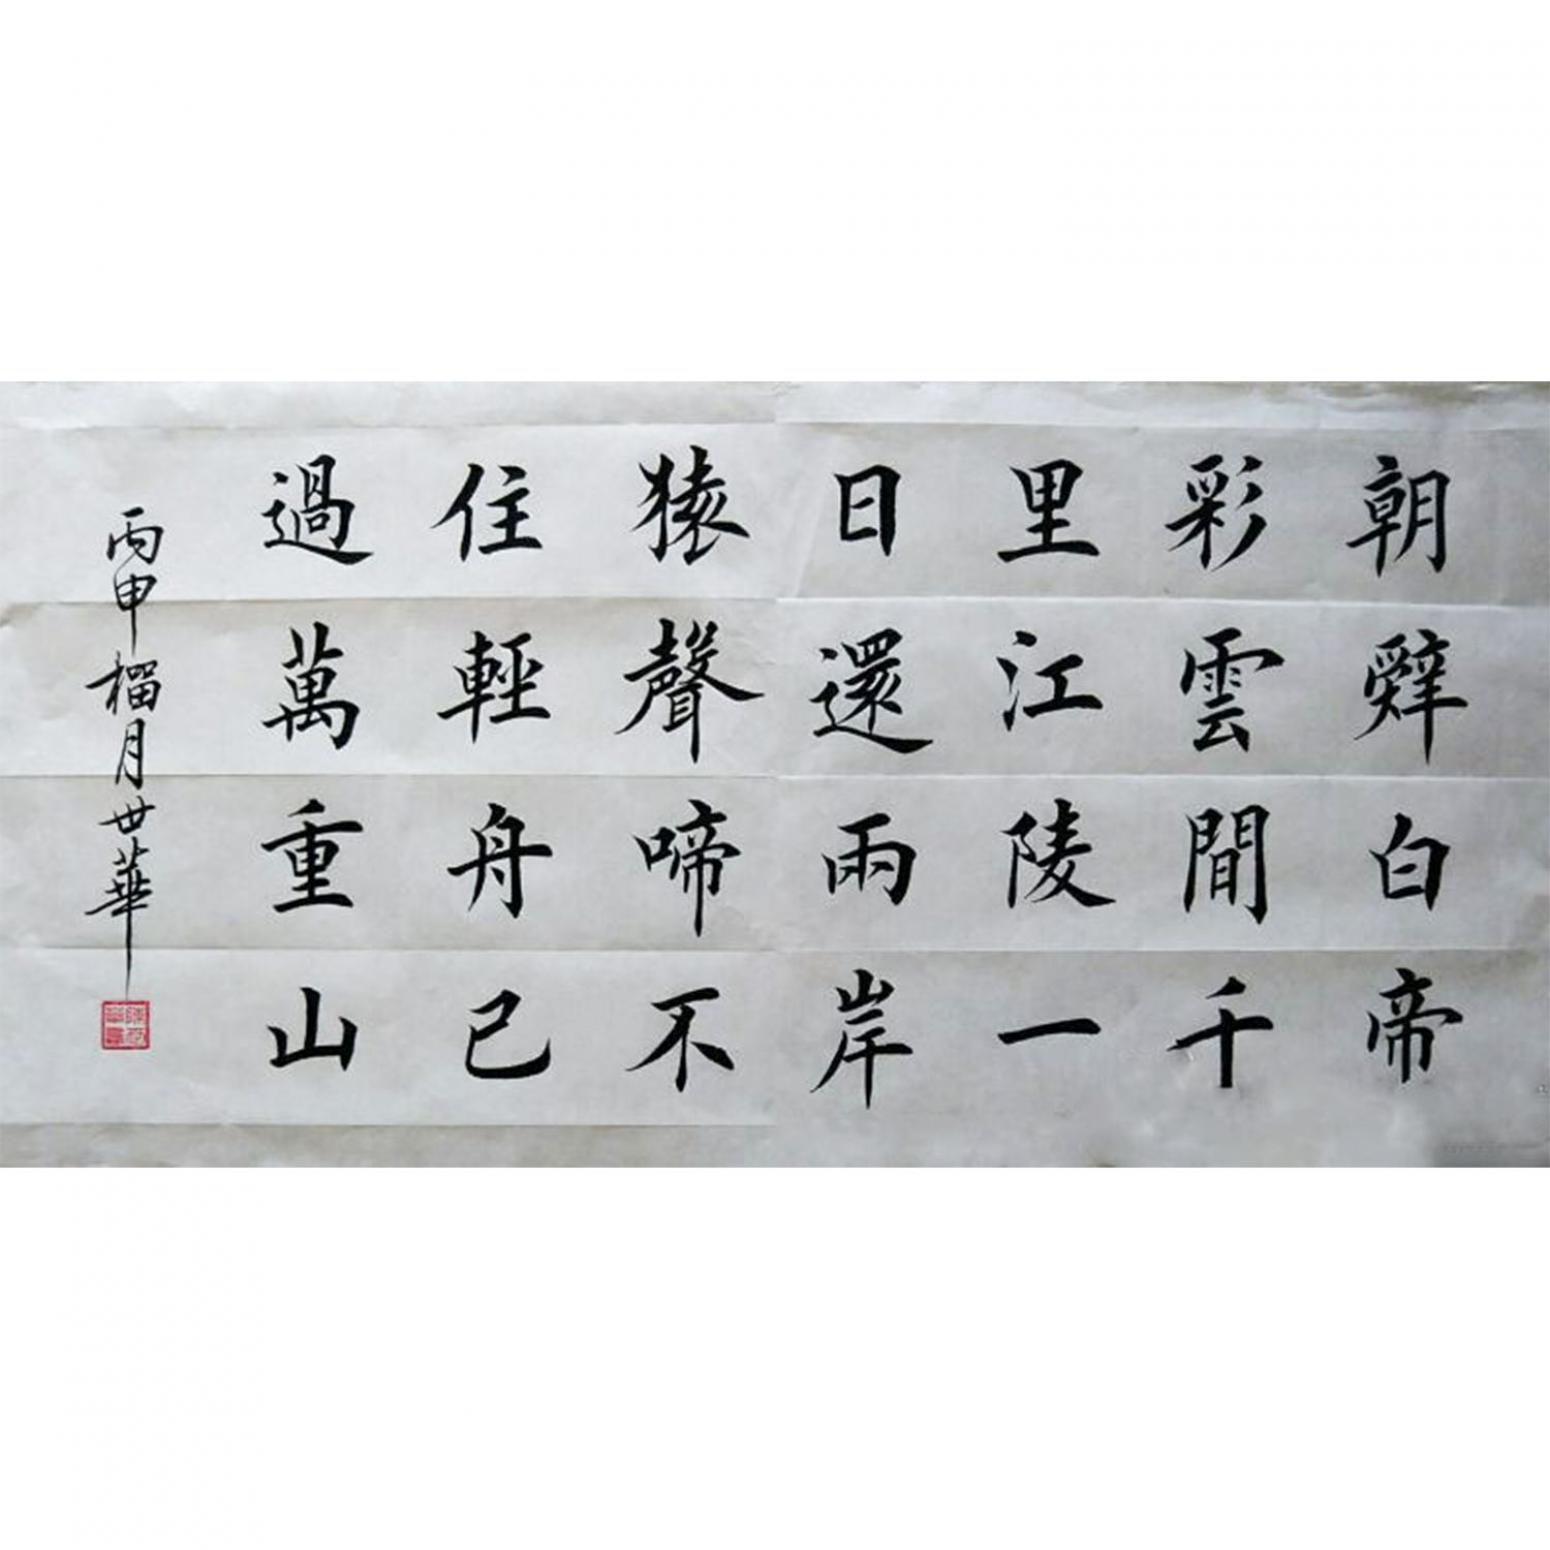 朝辤白帝
彩雲間千
里江陵一
日還兩岸
猿聲啼不
住輕舟已
過萬重山
丙申榴月世華